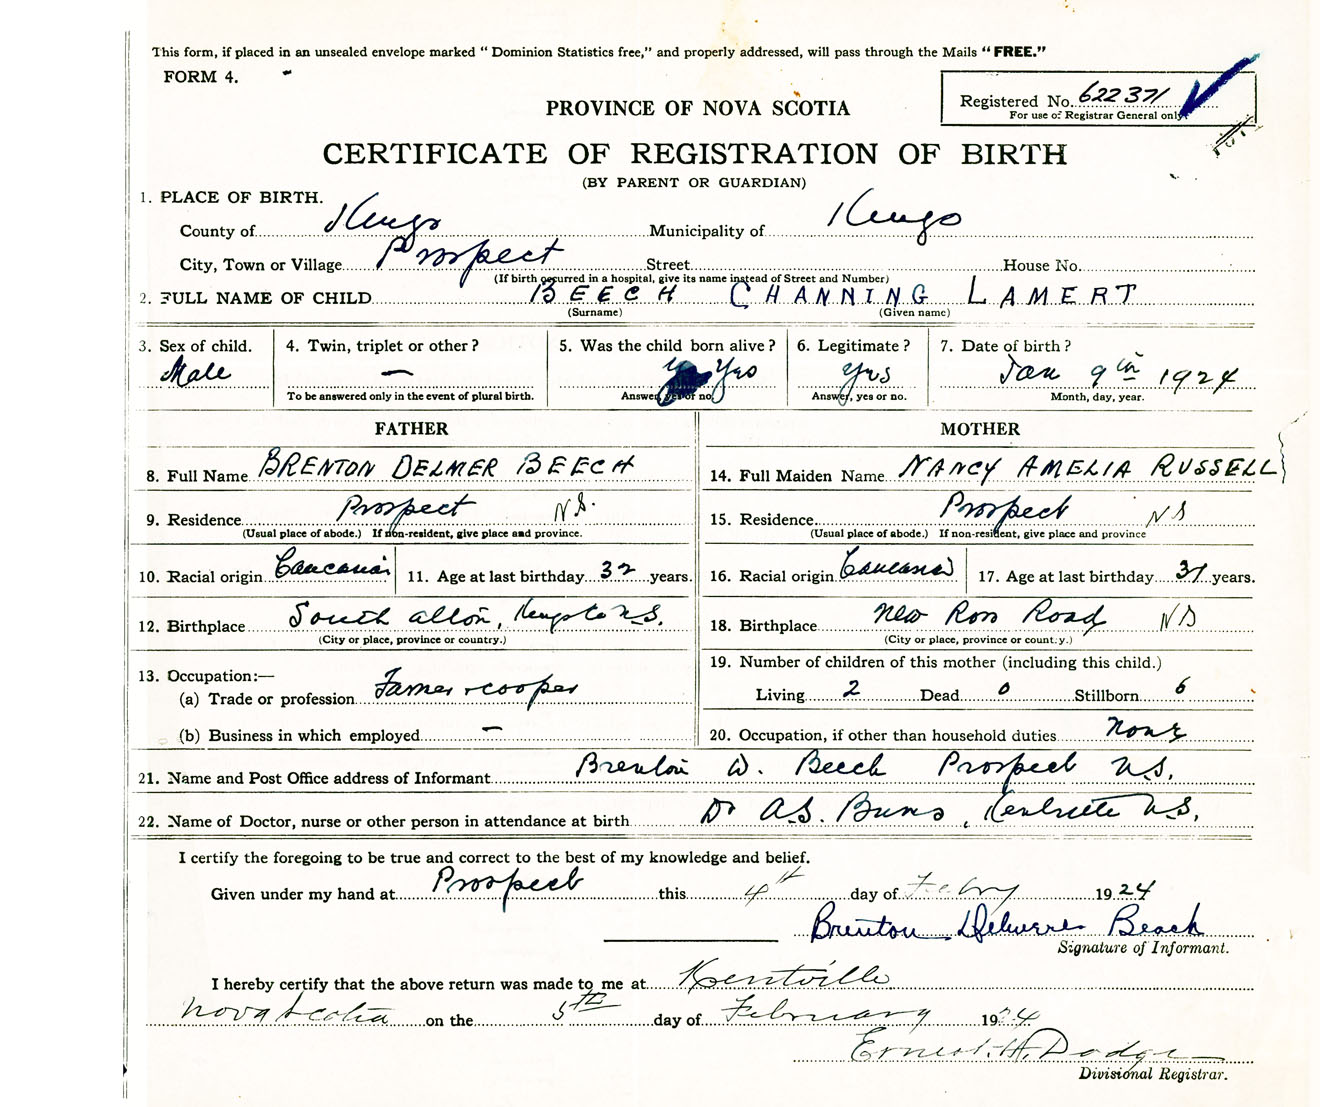 This form, if placed in an unsealed envelope marked “ Dominion Statistics free,” and properly addressed, will pass through the Mails “FREE.”
FORM 4.
Registered No. 622371
For use of Registrar General only
PROVINCE OF NOVA SCOTIA
CERTIFICATE OF REGISTRATION OF BIRTH
(BY PARENT OR GUARDIAN)
1. PLACE OF BIRTH.
County of Kings Municipality of Kings
City, Town or Village Prospect Street House No.
(If birth occurred in a hospital, give its name instead of Street and Number)
2. FULL NAME OF CHILD BEECH CHANNING LAMERT
(Surname) (Given name)
3. Sex of child. 4. Twin, triplet or other? 5. Was the child born alive? 6. Legitimate? 7. Date of birth?
Male — Yes Yes Jan 9th 1924
To be answered only in the event of plural birth. Answer, yes or no Answer, yes or no. Month, day, year.
FATHER MOTHER
8. Full Name BRENTON DELMER BEECH 14. Full Maiden Name NANCY AMELIA RUSSELL
9. Residence Prospect N.S. 15. Residence Prospect NS
(Usual place of abode.) If non-resident, give place and province. (Usual place of abode.) If non-resident, give place and province
10. Racial origin 11. Age at last birthday 32 years. 16. Racial origin 17. Age at last birthday 31 years.
12. Birthplace South Alton, N.S. 18. Birthplace New Ross Road NS
(City or place, province or country.) (City or place, province or country.)
13. Occupation:— 19. Number of children of this mother (including this child.)
(a) Trade or profession Farmer + cooper Living 2 Dead 0 Stillborn
(b) Business in which employed — 20. Occupation, if other than household duties None
21. Name and Post Office address of Informant Brenton D. Beech Prospect N.S.
22. Name of Doctor, nurse or other person in attendance at birth Dr A.S. Burns, Kentville N.S.
I certify the foregoing to be true and correct to the best of my knowledge and belief.
Given under my hand at Prospect this 4th day of Febry 1924
Brenton Beach
Signature of Informant.
I hereby certify that the above return was made to me at Kentville
Nova Scotia on the 5TH day of February 1924
Ernest. H. Dodge
Divisional Registrar.